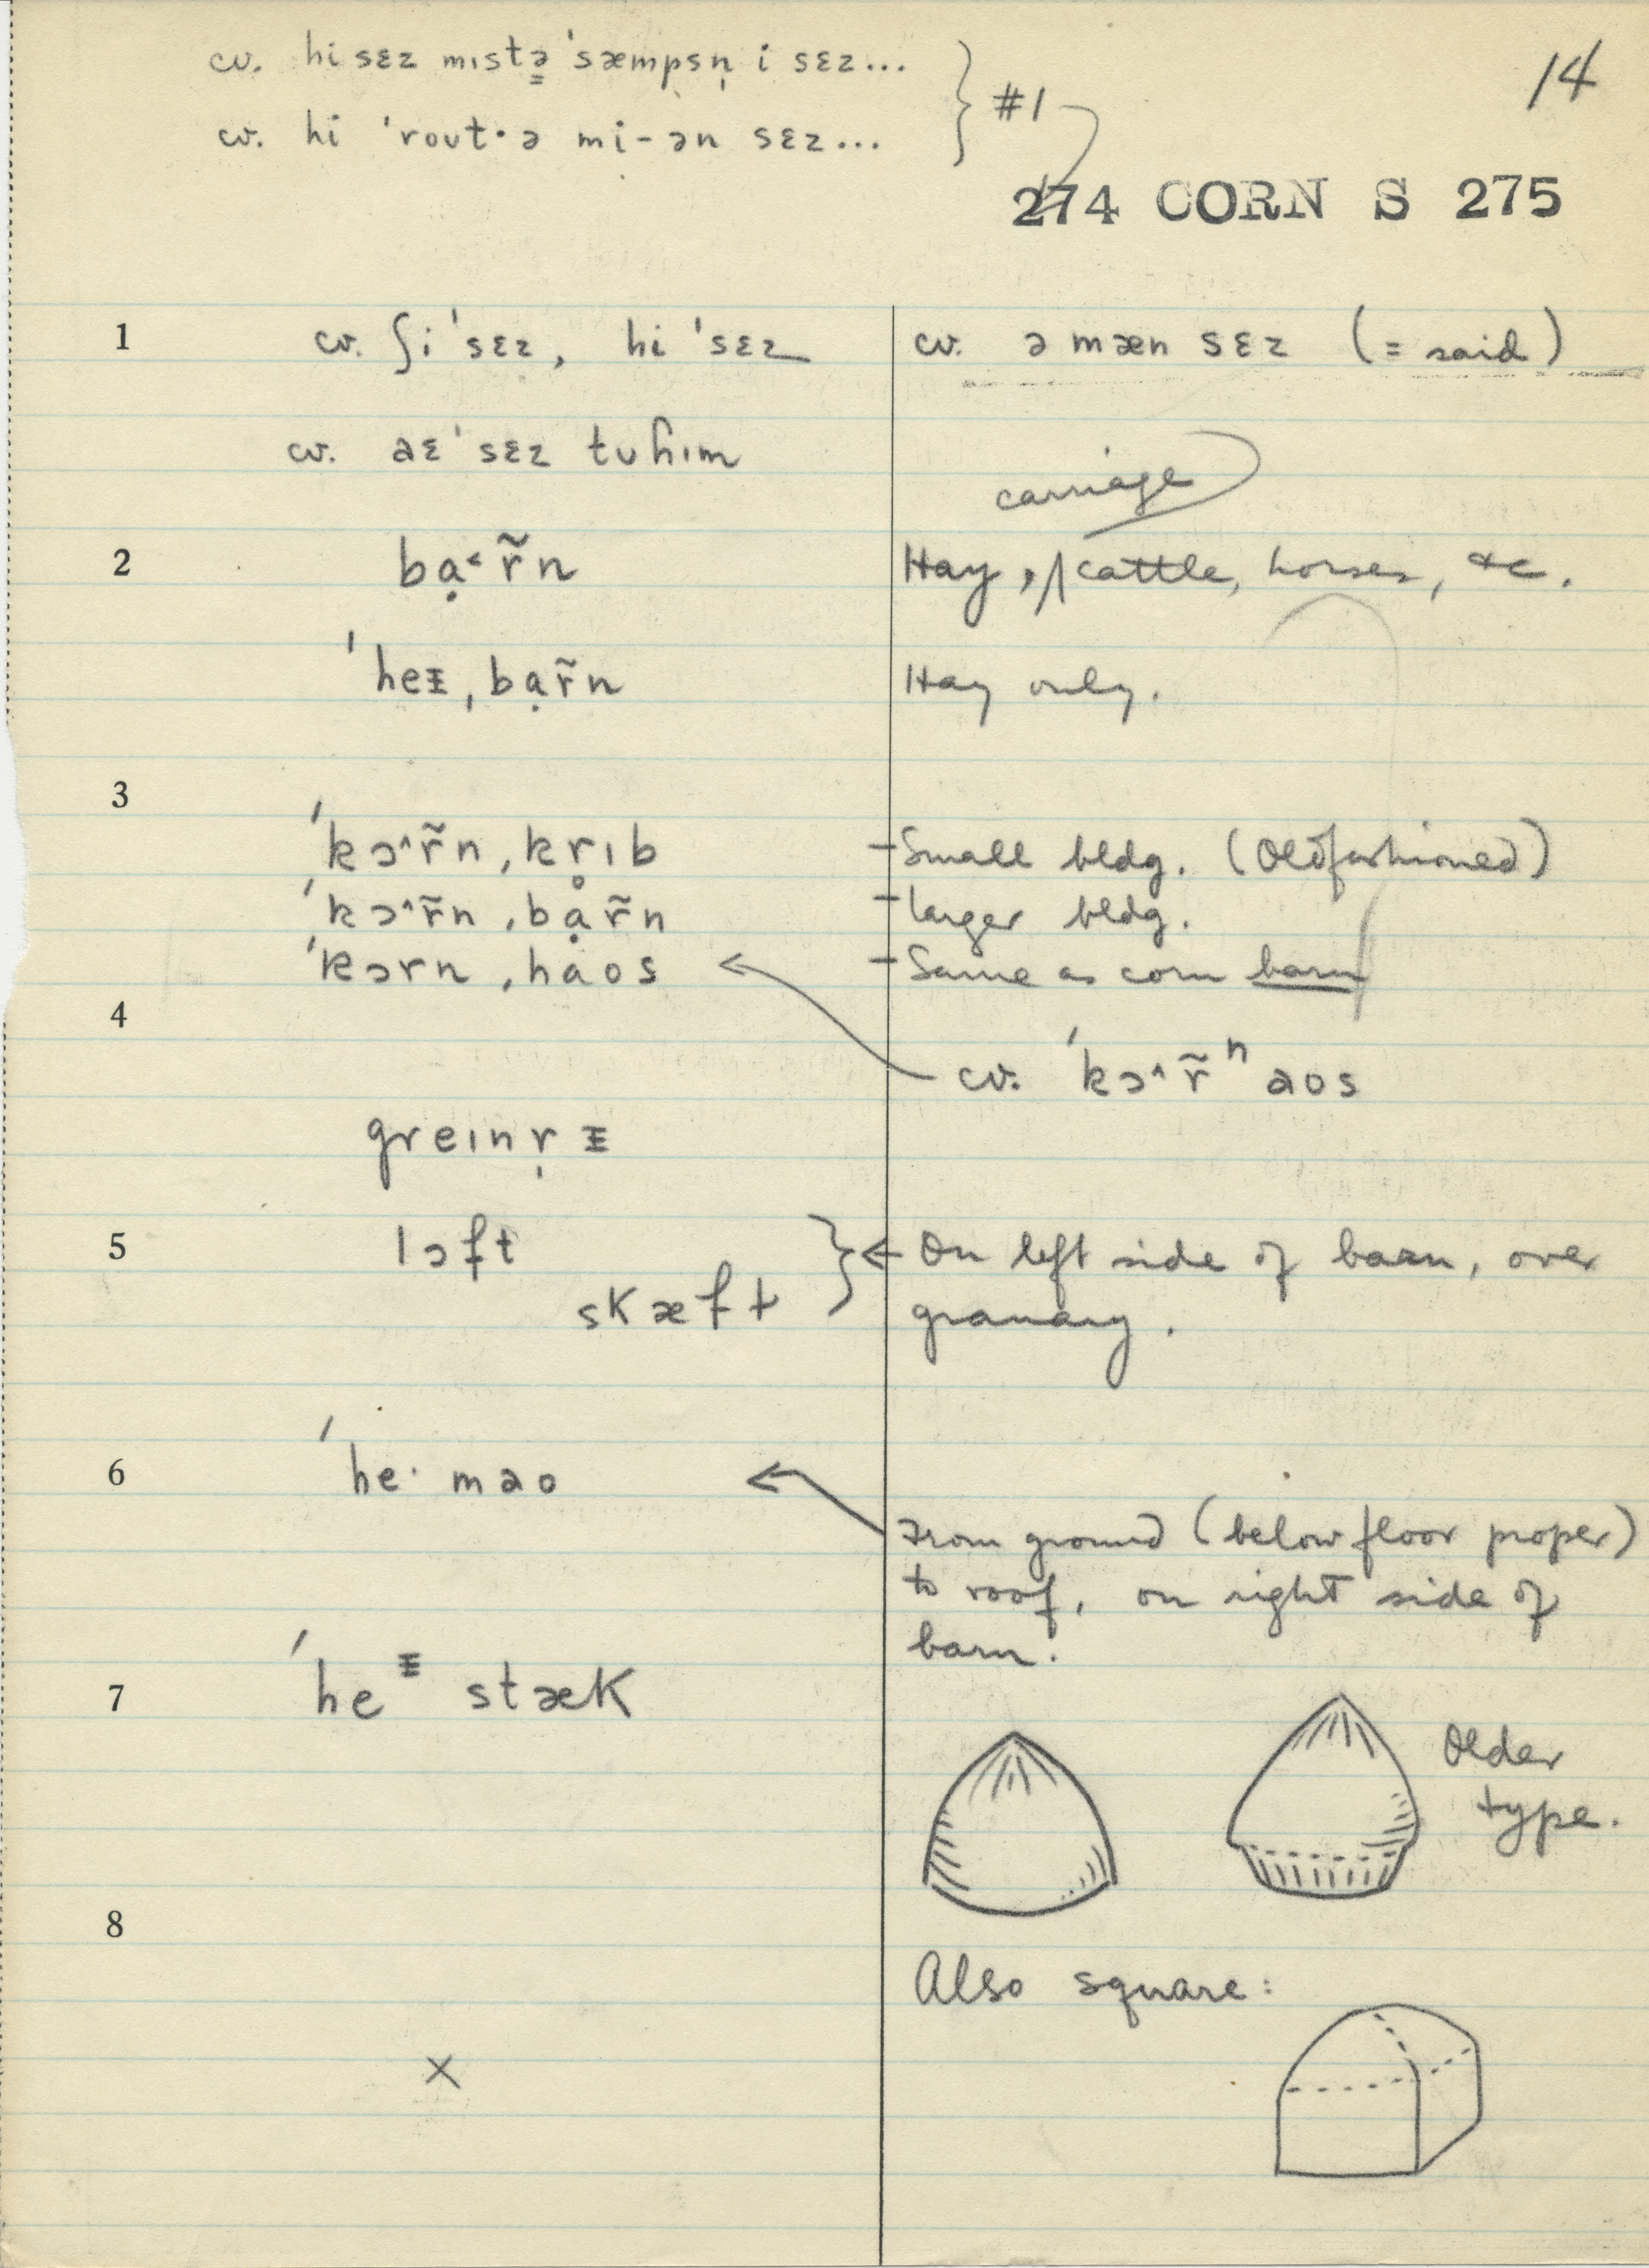 cv. hi sɛz mɪstə̳ ˈsæmpsn̩ i sɛz...
cv. hi ˈroʊt·ə mi-ən sɛz...
#1
14
274 CORN S 275
1 cv. ʃi ˈsɛz, hi ˈsɛz cv. ə mæn sɛz (= said)
cv. aɛ ˈsɛz tʊ ɦɪm
carriage
2 bạ˂r̃n Hay, cattle, horses, &c.
ˈheɪ̵ˌbạr̃n Hay only.
3
ˈkɔ˄r̃nˌkr̥ɪb – Small bldg. (Oldfashioned)
ˈkɔ˄r̃nˌbạr̃n – larger bldg.
ˈkɔrnˌhaos – Same as corn barn
4
cv. ˈkɔ˄r̃ⁿaos
greɪnr̩ɪ̵
5 lɔft On left side of barn, over
skæft granary.
6 ˈhe· mao
From ground (below floor proper)
to roof, on right side of
barn.
7 ˈheᵻ stæk
Older
type.
8
Also square:
×